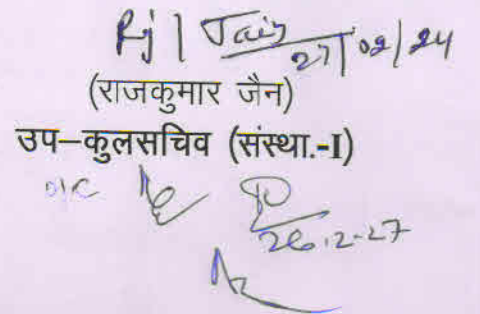 Rj | Jain
27/02/24
(राजकुमार जैन)
उप–कुलसचिव (संस्था.-I)
o/c
26.2.27